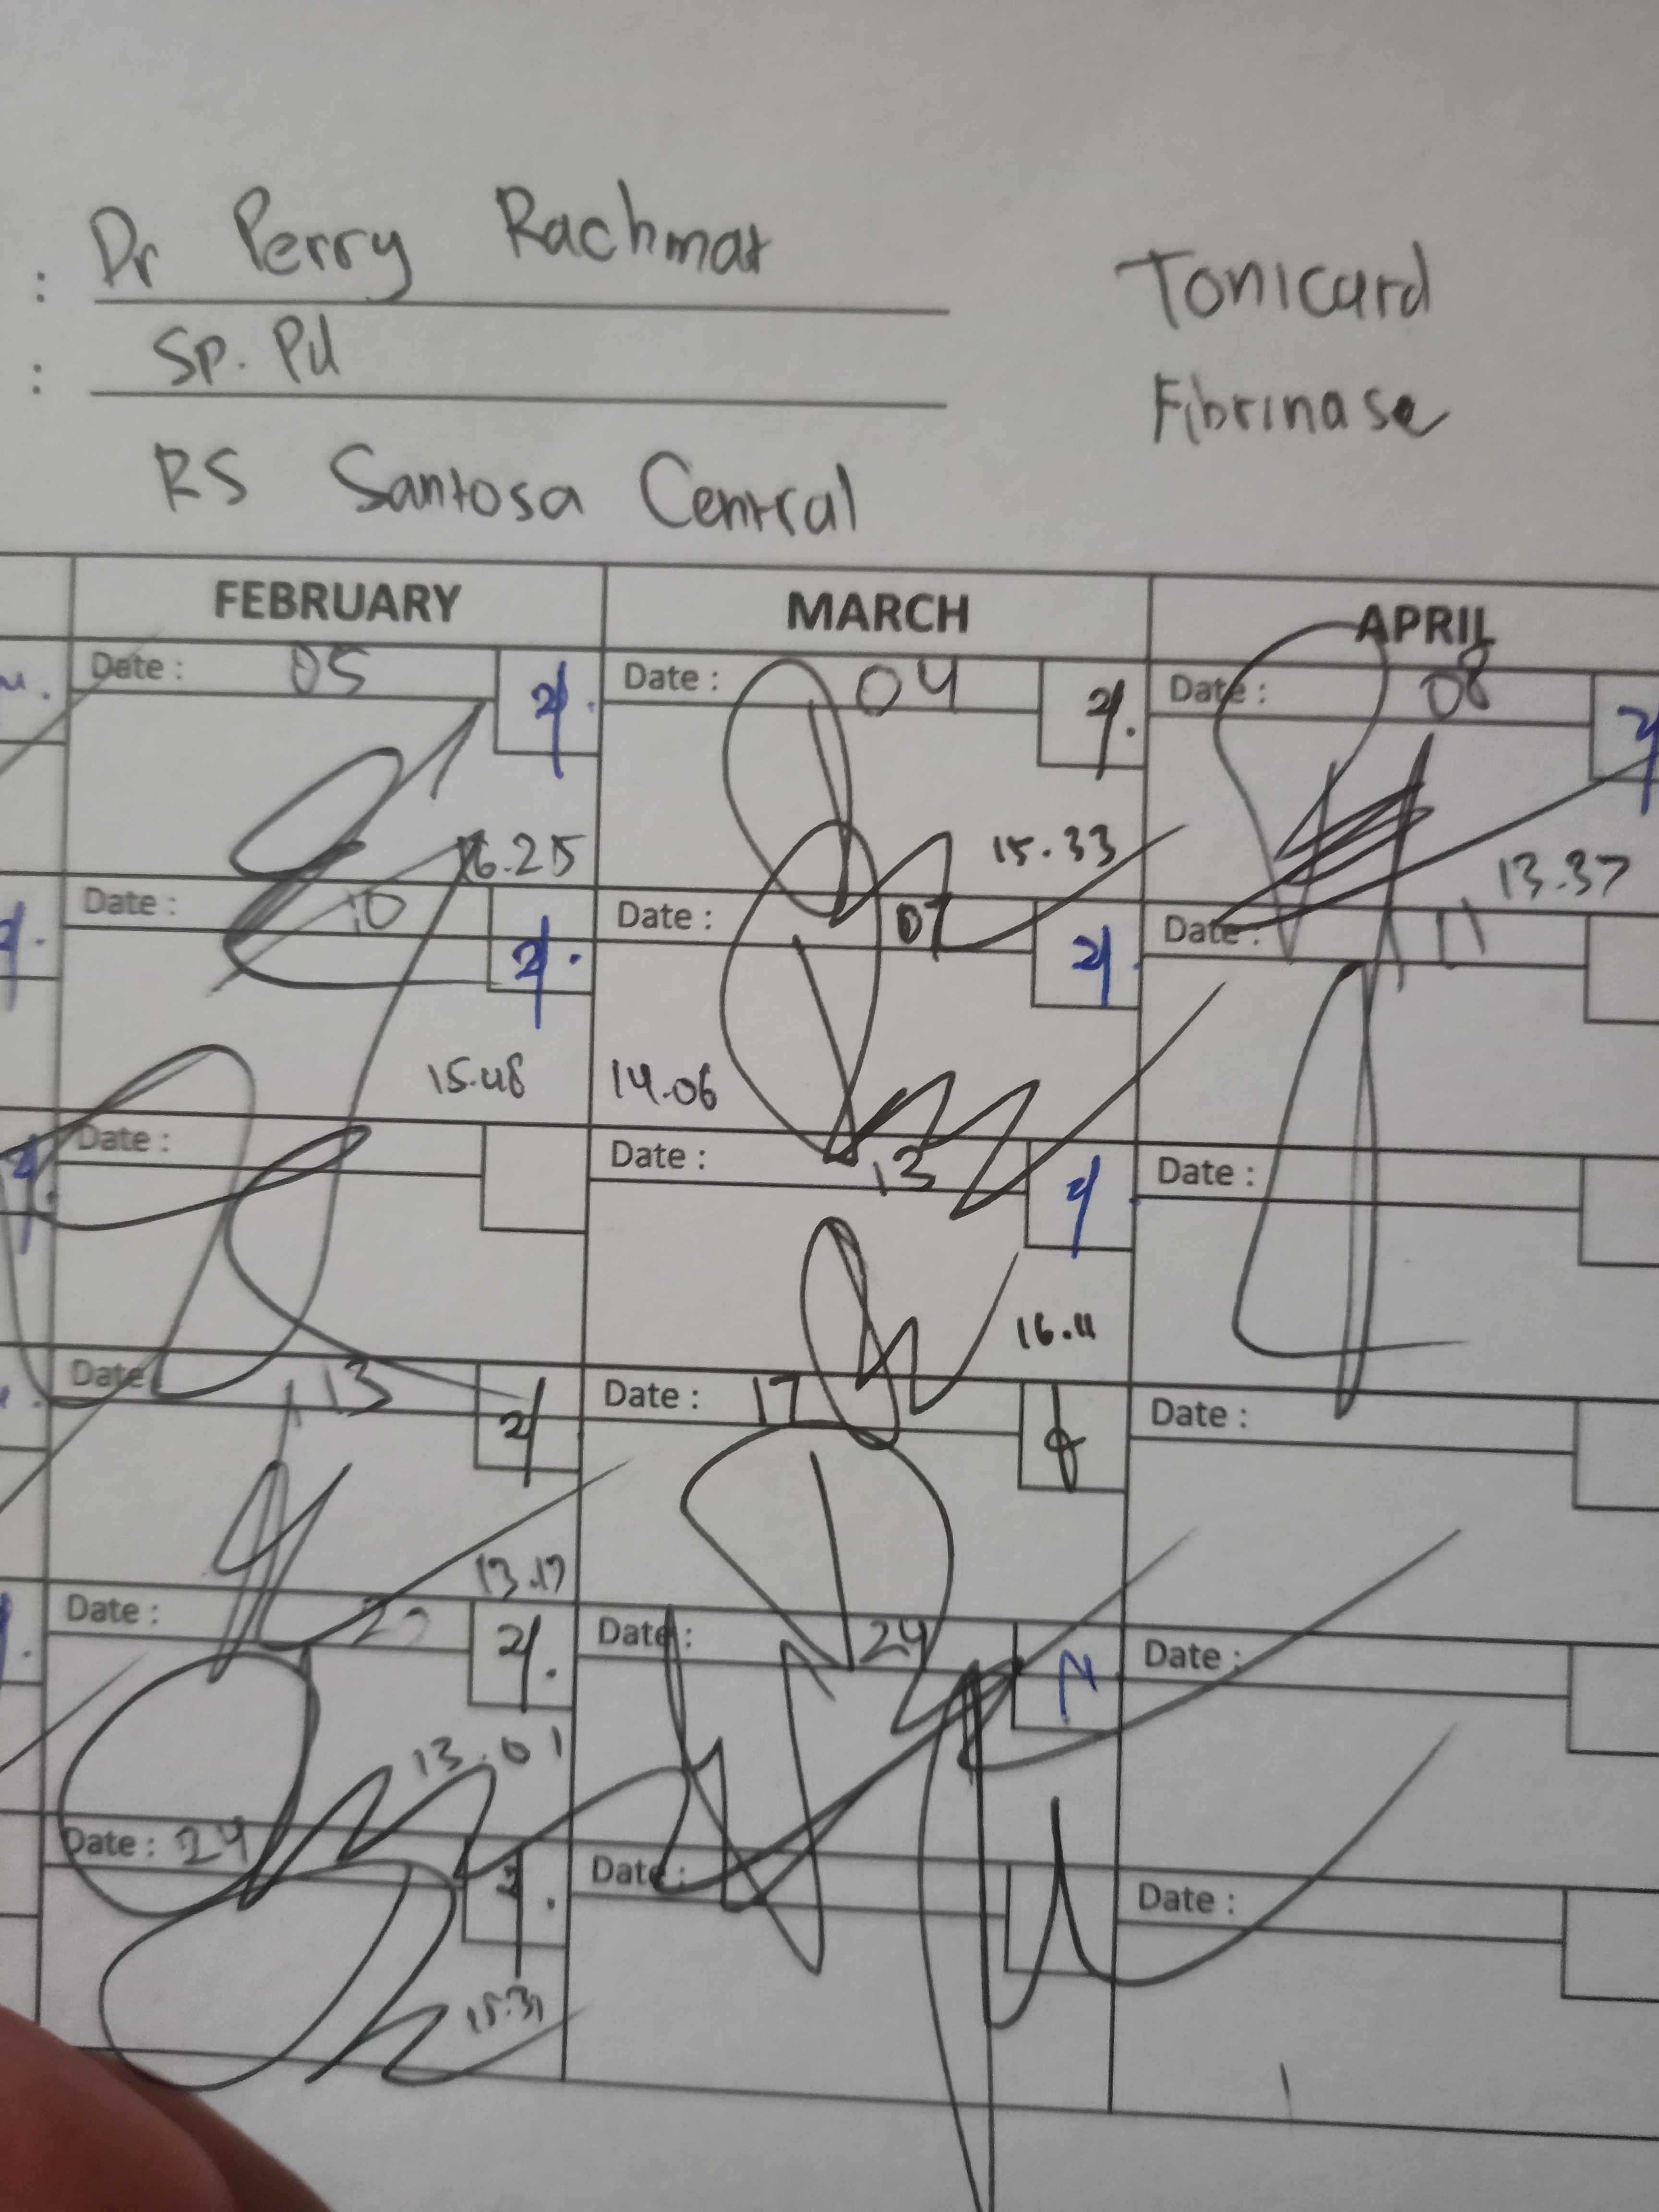 : Dr Perry Rachmat
Tonicard
: Sp. Pd
Fibrinase
RS Santosa Central
FEBRUARY MARCH APRIL
Date : 05 Date : 04 Date : 08
16.25 15.33 13.37
Date : 10 Date : 07 Date : 11
15.48 14.06
Date : Date : 13 Date :
16.11
Date : 13 Date : 17 Date :
13.17
Date : Date : 24 Date :
13.01
Date : 24 Date : Date :
15.31